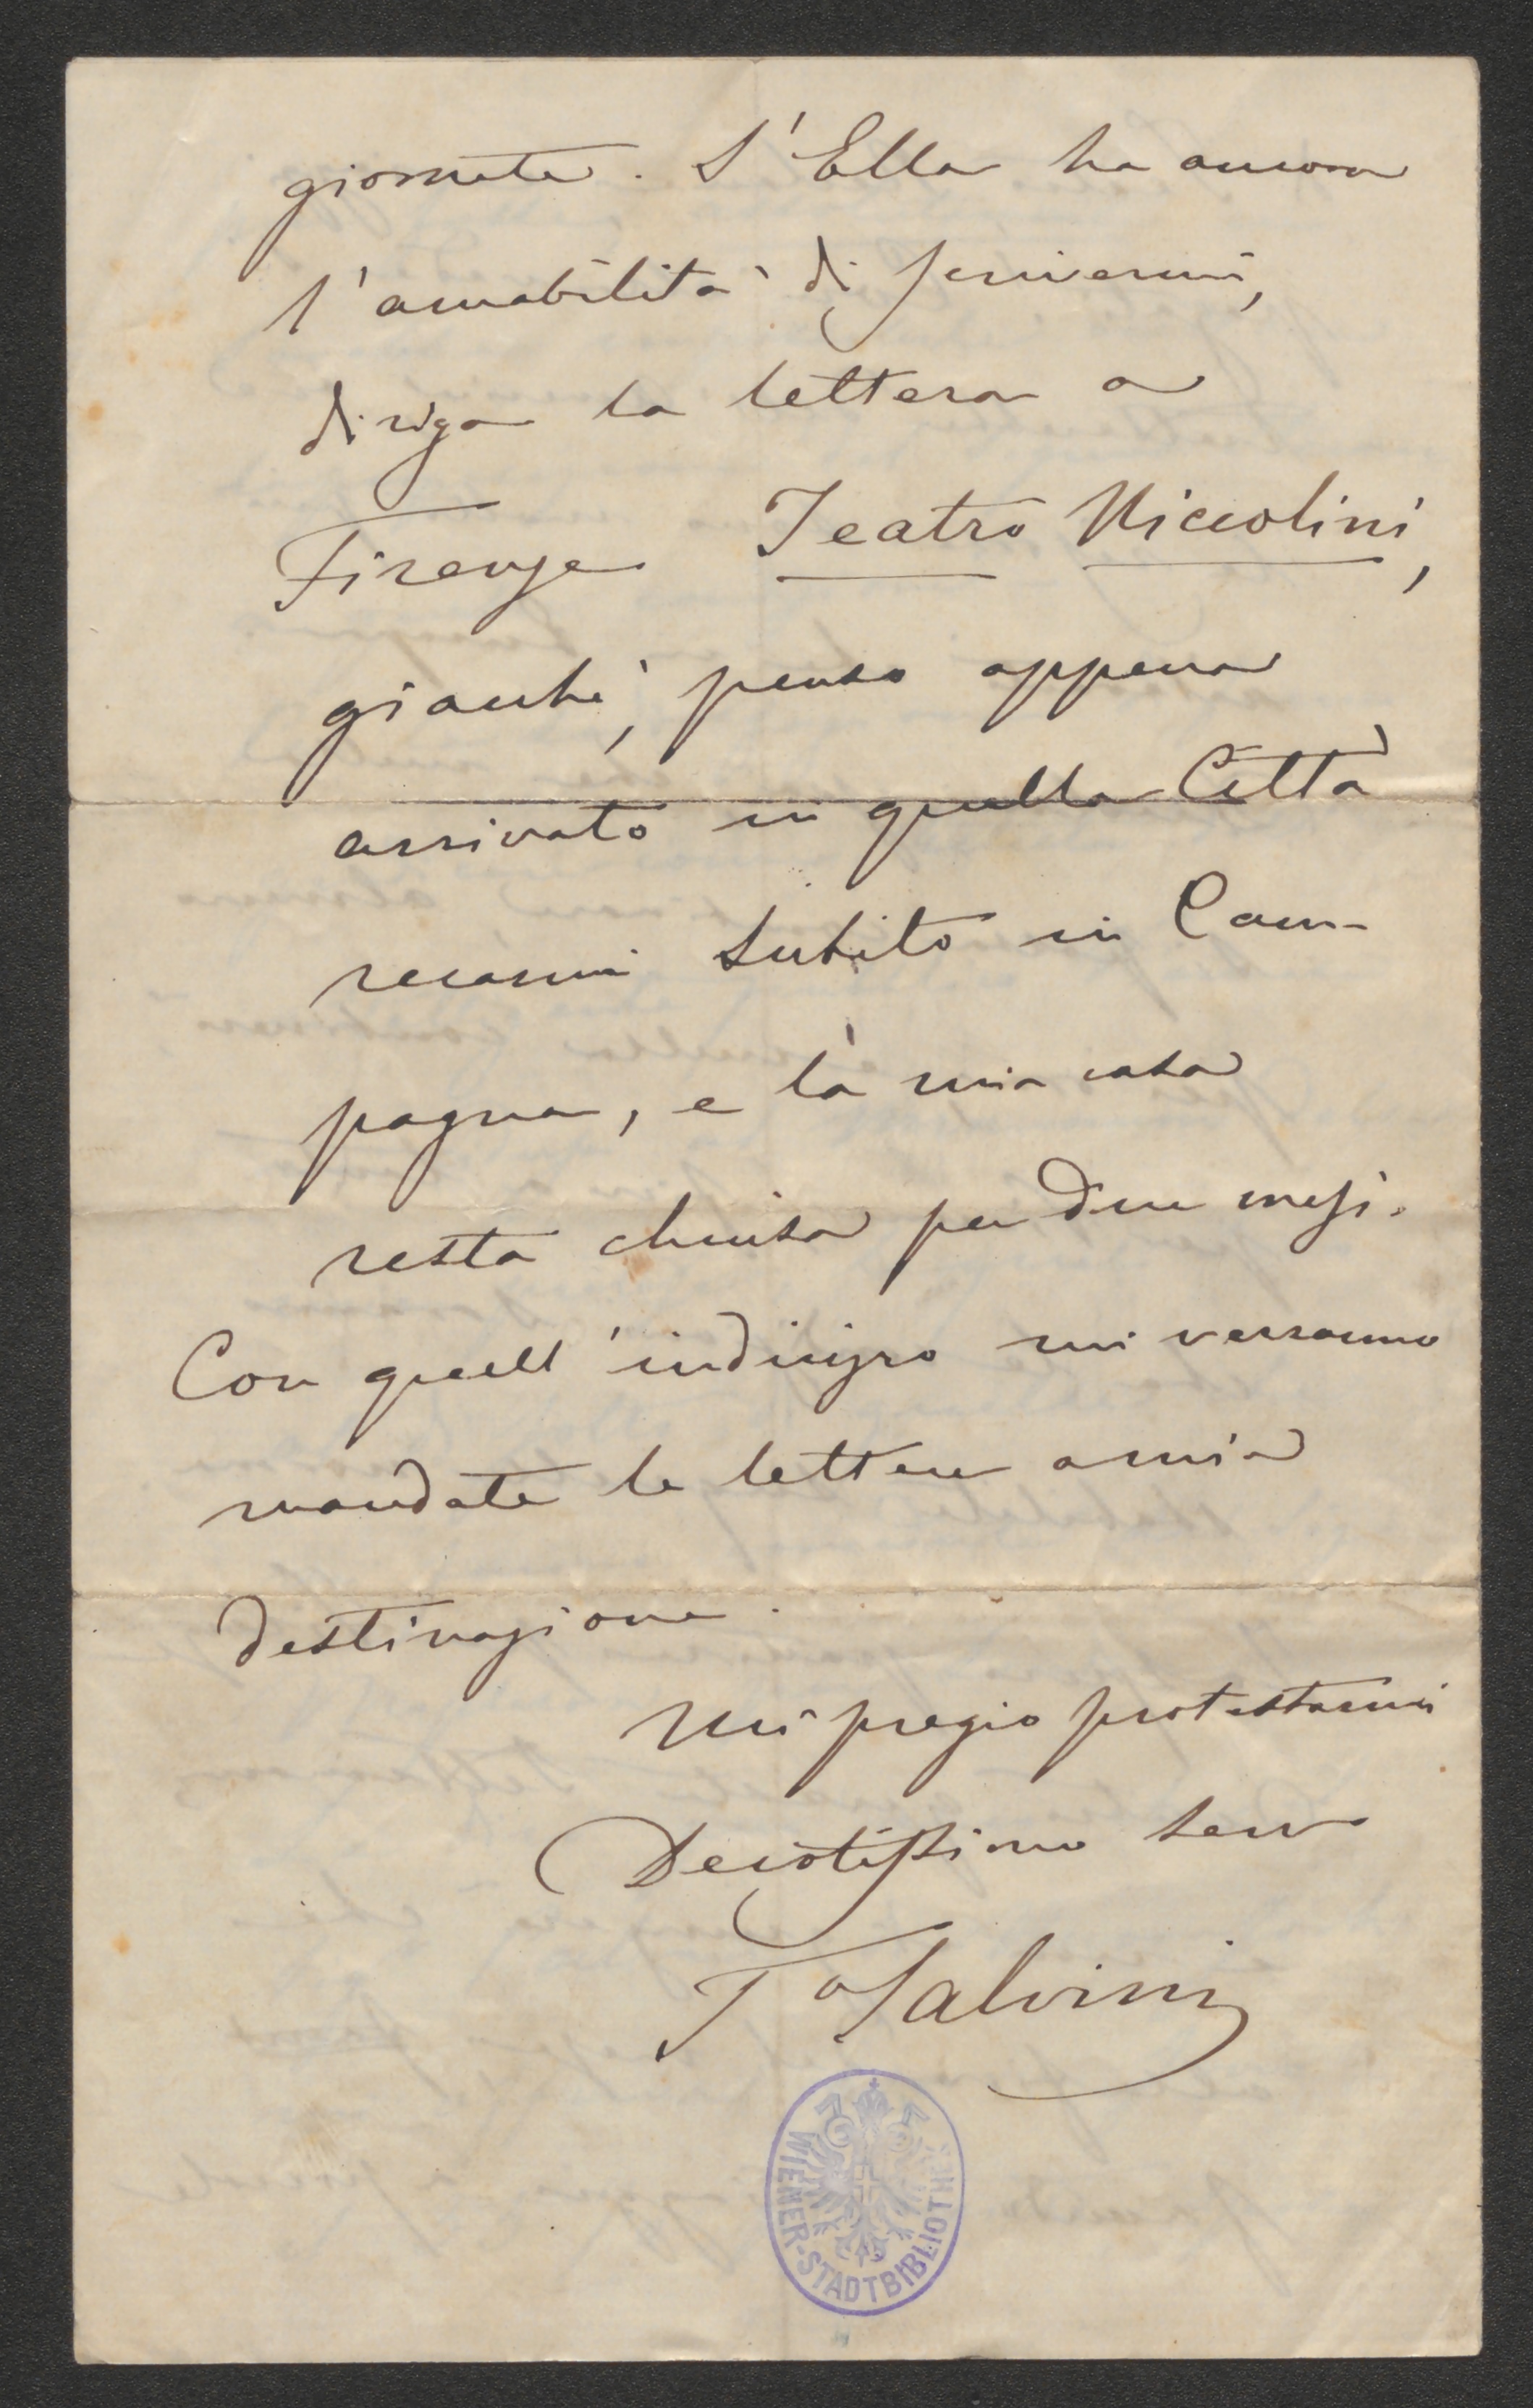 giornate. S'Ella ha ancora
l'amabilità di scrivermi,
diriga la lettera a
Firenze Teatro Niccolini,
giacchè, penso appena
arrivato in quella Città
recarmi subito in Cam-
pagna, e la mia casa
resta chiusa per due mesi.
Con quell'indirizzo mi verranno
mandate le lettere a mia
destinazione.
Mi pregio protestarmi
Devotissimo serv
T Salvini
WIENER-STADTBIBLIOTHEK